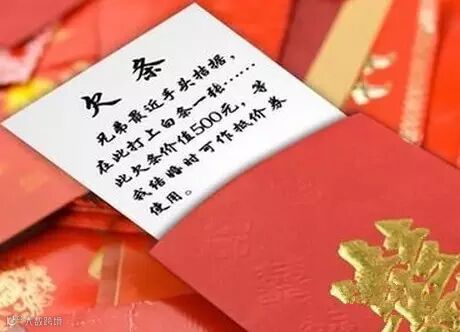 欠条
兄弟最近手头拮据,
在此打上白条一张……
此欠条价值500元,等
我结婚时可作抵价券
使用。